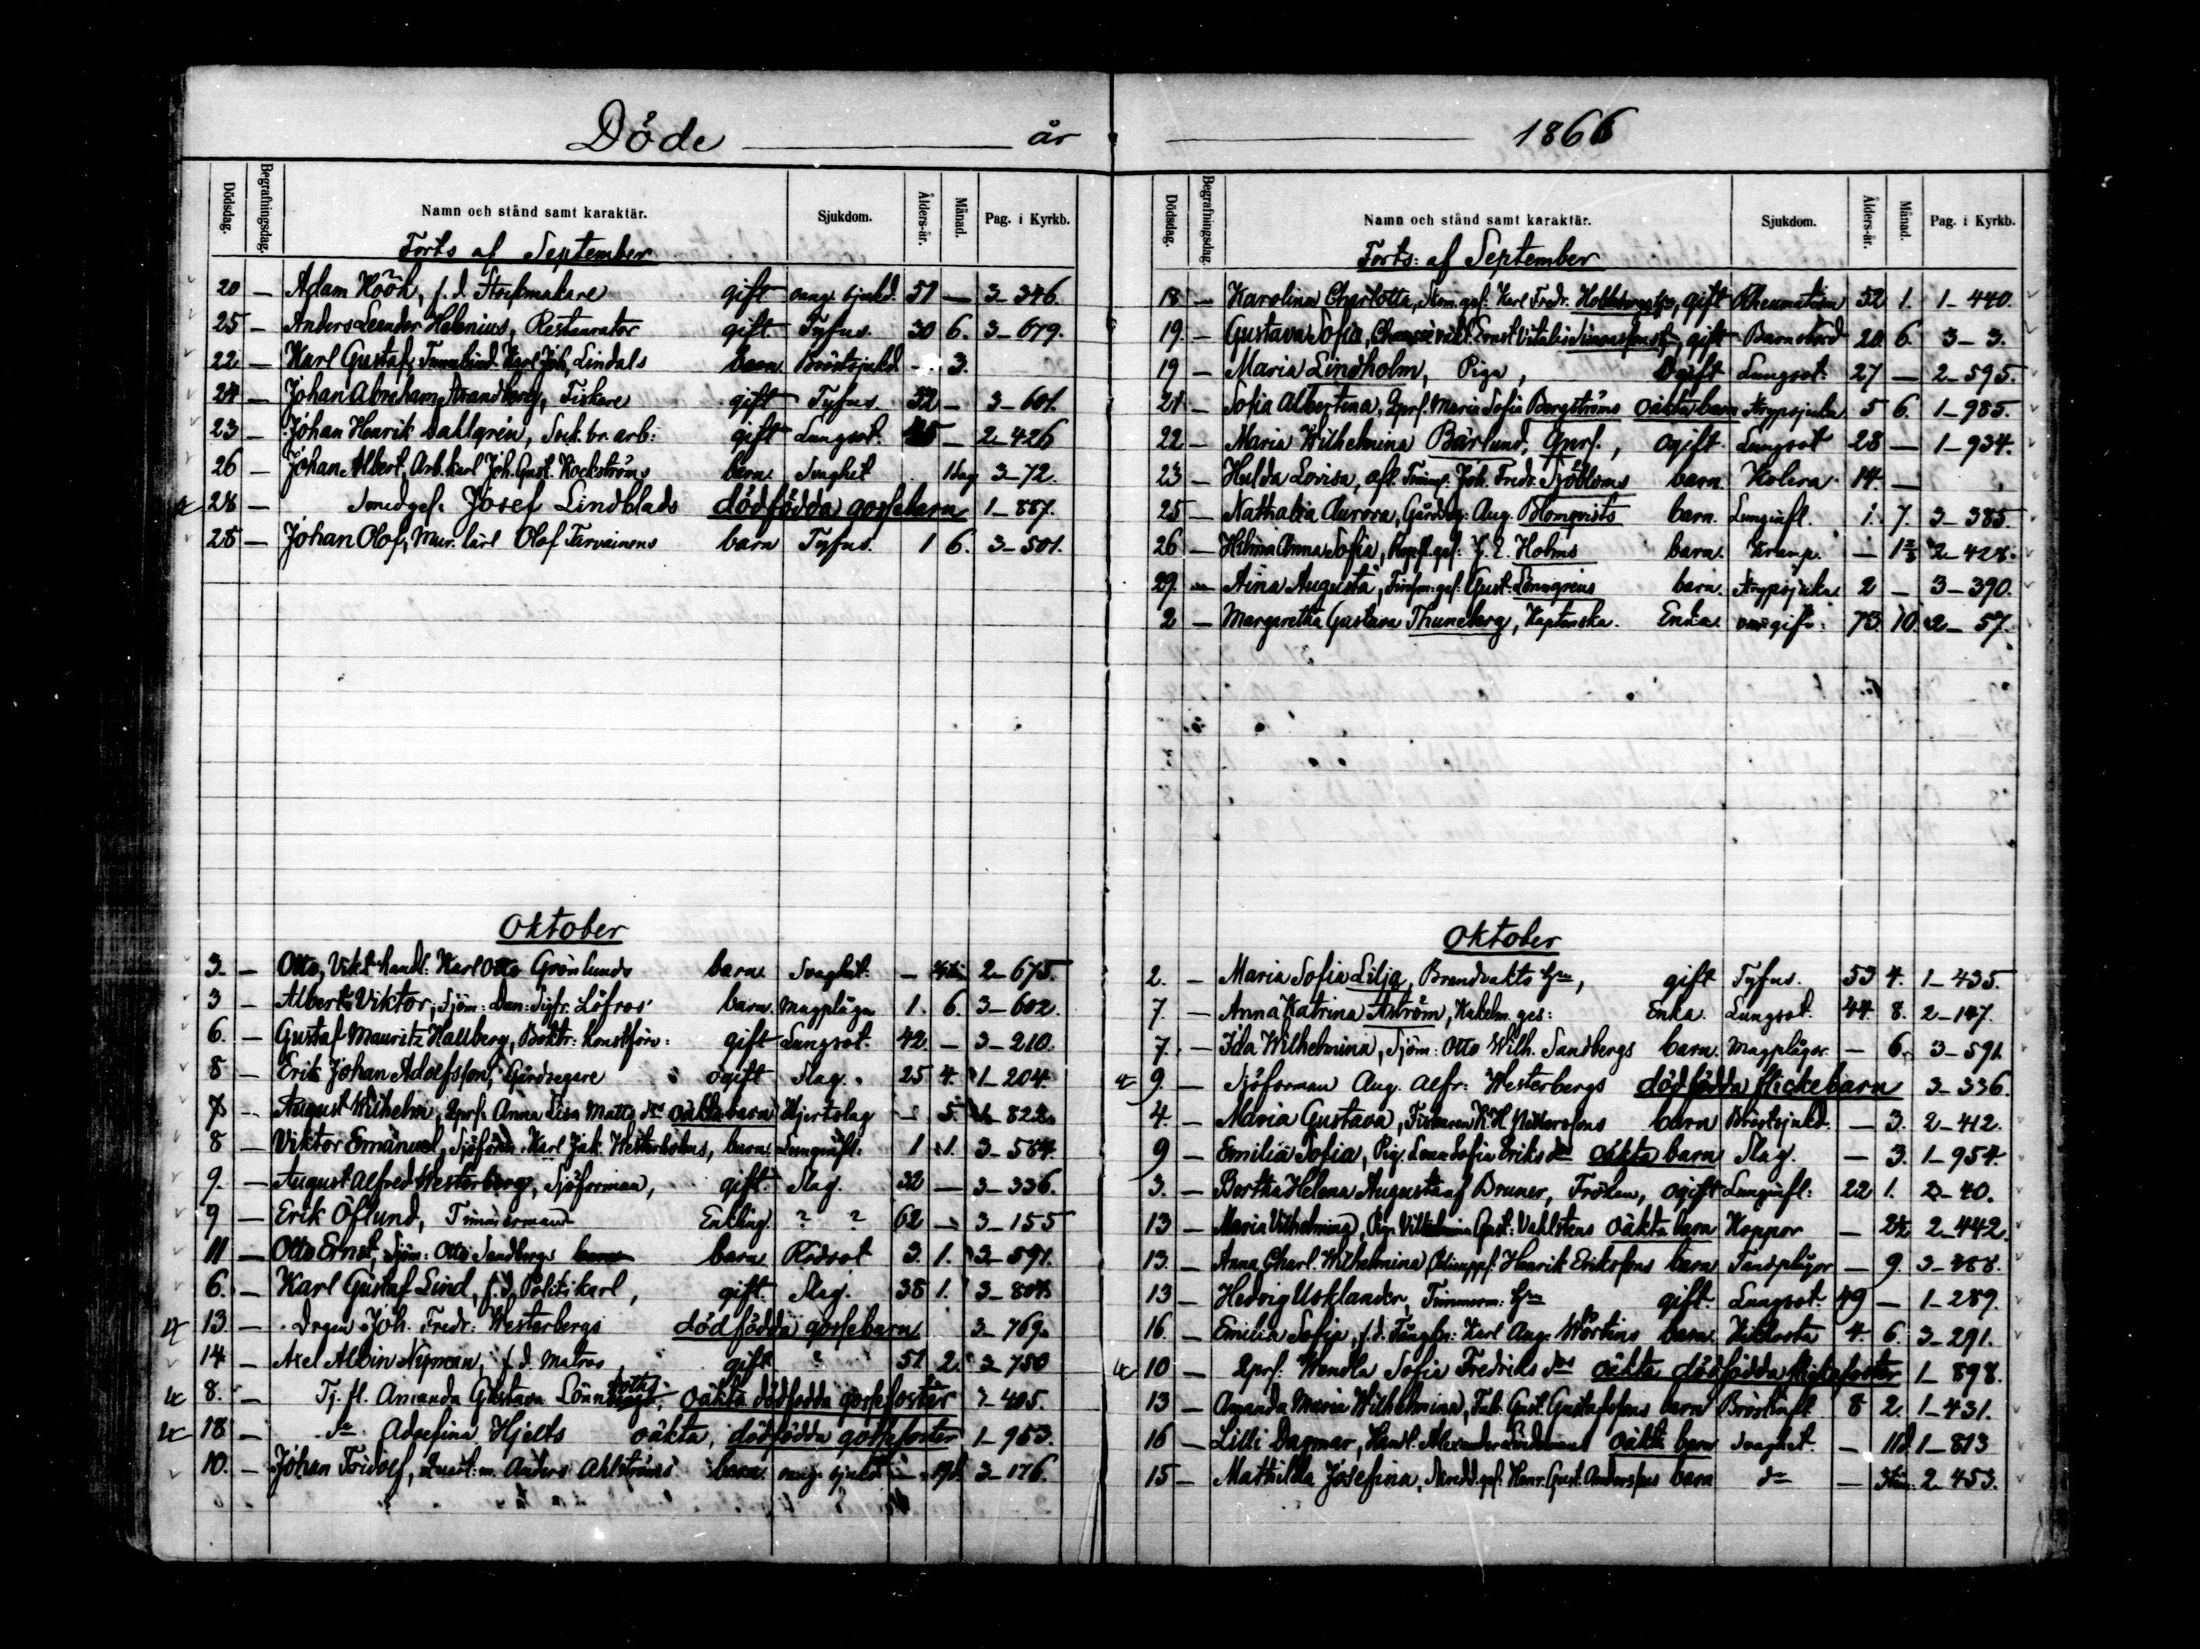 Döde — år
Dödsdag. Begrafningsdag. Namn och stånd samt karaktär. Sjukdom. Ålders-år. Månad. Pag. i Kyrkb.
Forts af September
20 — Adam Höök, f. d. gift ong. sjukd. 51 — 3–346.
25 — Anders Leander Helenius, Restaurator gift Tyfus. 30 6. 3–679.
22 — Karl Gustaf, Karl Joh. Lindals barn Bröstsjukd — 3.
24 — Johan Abraham Strandberg, Fiskare gift Tyfus. 32 — 3–601.
23 — Johan Henrik Dahlgrén, Sock. br. arb: gift Lungsot. — 2–426
26 — Johan Albert, Arb. karl Joh. Gust. Rockströms barn Svaghet 1 dag 3–72.
28 — Smedges. Josef Lindblads dödfödda gossebarn 1–887.
28 — Johan Olof, Mur. lärl Olof Tarvainens barn Tyfus. 1 6. 3–501.
Oktober
3. — Otto, Vikt. handl: Karl Otto Grönlunds barn. Svaghet. — 2–675.
3 — Albert Viktor, Sjöm: Dan: Sigfr: Löfros' barn. Magplåga 1. 6. 3–602.
6. — Gustaf Mauritz Hallberg, Boktr: konstförv: gift Lungsot. 42. — 3–210.
8 — Erik Johan Adolfsson, Gårdsegare ogift Slag. 25 4. 1–204.
7 — August Wilhelm, Lprf. Anna Lisa Matts dr oäkta barn Hjertslag — 5. 822.
8 — Viktor Emanuel, Sjöförm. Karl Jak. Westerholms, barn. Lunginfl. 1 1. 3–584.
9. — August Alfred Westerberg, Sjöförman, gift Slag. 32 — 3–336.
9 — Erik Öflund, Timmerman Enkling ? ? 62 — 3–155
11 — Otto Ernst, Sjöm: Otto Sandbergs barn Rödsot 3. 1. 3–591.
6. — Karl Gustaf Lind, f. d. Politikarl, gift. Slag. 38 1. 3–
13. — Drgen Joh. Fredr: Westerbergs dödfödda gossebarn 3–769.
14 — Axel Albin Nyman, f. d. Matros, gift 51 2. 3–750
8. — Tj. fl. Amanda Gustava oäkta dödfödda gossefoster 2–405.
18 — do Adolfina Hjelts oäkta, dödfödda gossefoster 1–953.
10. — Johan Fridolf, Anders Ahlströms barn. ong. sjukd — 19d. 3–176.
1866
Dödsdag. Begrafningsdag. Namn och stånd samt karaktär. Sjukdom. Ålders-år. Månad. Pag. i Kyrkb.
Forts: af September
18 — Karolina Charlotta, Karl Fredr. gift Rheumatism 52 1. 1–440.
19. — Gustava Sofia, Ernst Vitalis gift Barnsbörd 20. 6. 3–3.
19 — Maria Lindholm, Piga, Ogift Lungsot. 27 — 2–595.
21 — Sofia Albertina, Lprf. Maria Sofia Bergströms oäkta barn Strypsjuka 5 6. 1–985.
22 — Maria Wilhelmina Bärlund, Lprf., ogift. Lungsot 28 — 1–934.
23 — Hulda Lovisa, afl. Timmp. Joh. Fredr. Sjöbloms barn. Kolera 14 —
25 — Nathalia Aurora, Gårdsg: Aug. Blomqvists barn. Lunginfl. 1. 7. 3–385
26 — Helma Anna Sofia, J. E. Holms barn. Kramp. — 2–428.
29. — Aina Augusta, Gust. Lönngrens barn Strypsjuka 2 — 3–390.
2 — Margaretha Gustava Thuneberg, Kaptenska. Enka 73 10. 2–57.
Oktober
2. — Maria Sofia Lilja, Brandvakts hu, gift Tyfus. 53 4. 1–435.
7. — Anna Katrina Åström, Kakelm. ges: Enka. Lungsot. 44 8. 2–147.
7. — Ida Wilhelmina, Sjöm: Otto Wilh. Sandbergs barn. Magplågor. — 6. 3–591
9. — Sjöforman Aug. Alfr: Westerbergs dödfödda flickebarn 3–336.
4. — Maria Gustava, Fiskaren K. H. barn Bröstsjukd. — 3. 2–412.
9 — Emilia Sofia, Pig. Lena Sofia Eriks dr oäkta barn Slag. — 3. 1–954.
3. — Bertha Helena Augusta af Bruner, Fröken, ogift Lunginfl: 22 1. 2–40.
13 — Maria Vilhelmina, Pig. Vilhelmina Gust. Vahlstens oäkta barn Koppor — 2½ 2–442.
13. — Anna Charl. Wilhelmina, Henrik Erikssons barn Tandplågor — 9. 3–388.
13 — Hedvig Usklander, Timmerm: hu gift. Lungsot. 49 — 1–289.
16. — Emilia Sofia, f. d. Fångkn: Karl Aug. Wörtins barn. Kikhosta 4. 6. 3–291.
10 — Lprf. Wendla Sofia Fredriks drs oäkta dödfödda flickefoster 1–898.
13 — Amanda Maria Wilhelmina, Fab. Gust. Gustafssons barn Bröstinfl. 8 2. 1–431.
16 — Lilli Dagmar, Handl. Alexandra Lindemans oäkta barn Svaghet. — 11d. 1–813
15 — Mathilda Josefina, Skredd. ges. Henr. Gust. Anderssons barn do — 3 tim: 2–453.